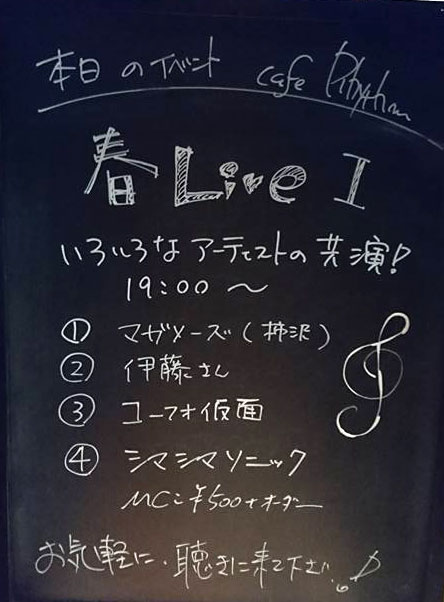 本日のイベント cafe Rhythm
春 Live I
いろいろなアーティストの共演!
19:00 〜
① マガメーズ(柿沢)
② 伊藤さん
③ ユーフォ仮面
④ シマシマソニック
MC:¥500+オーダー
お気軽に、聴きに来て下さい♪